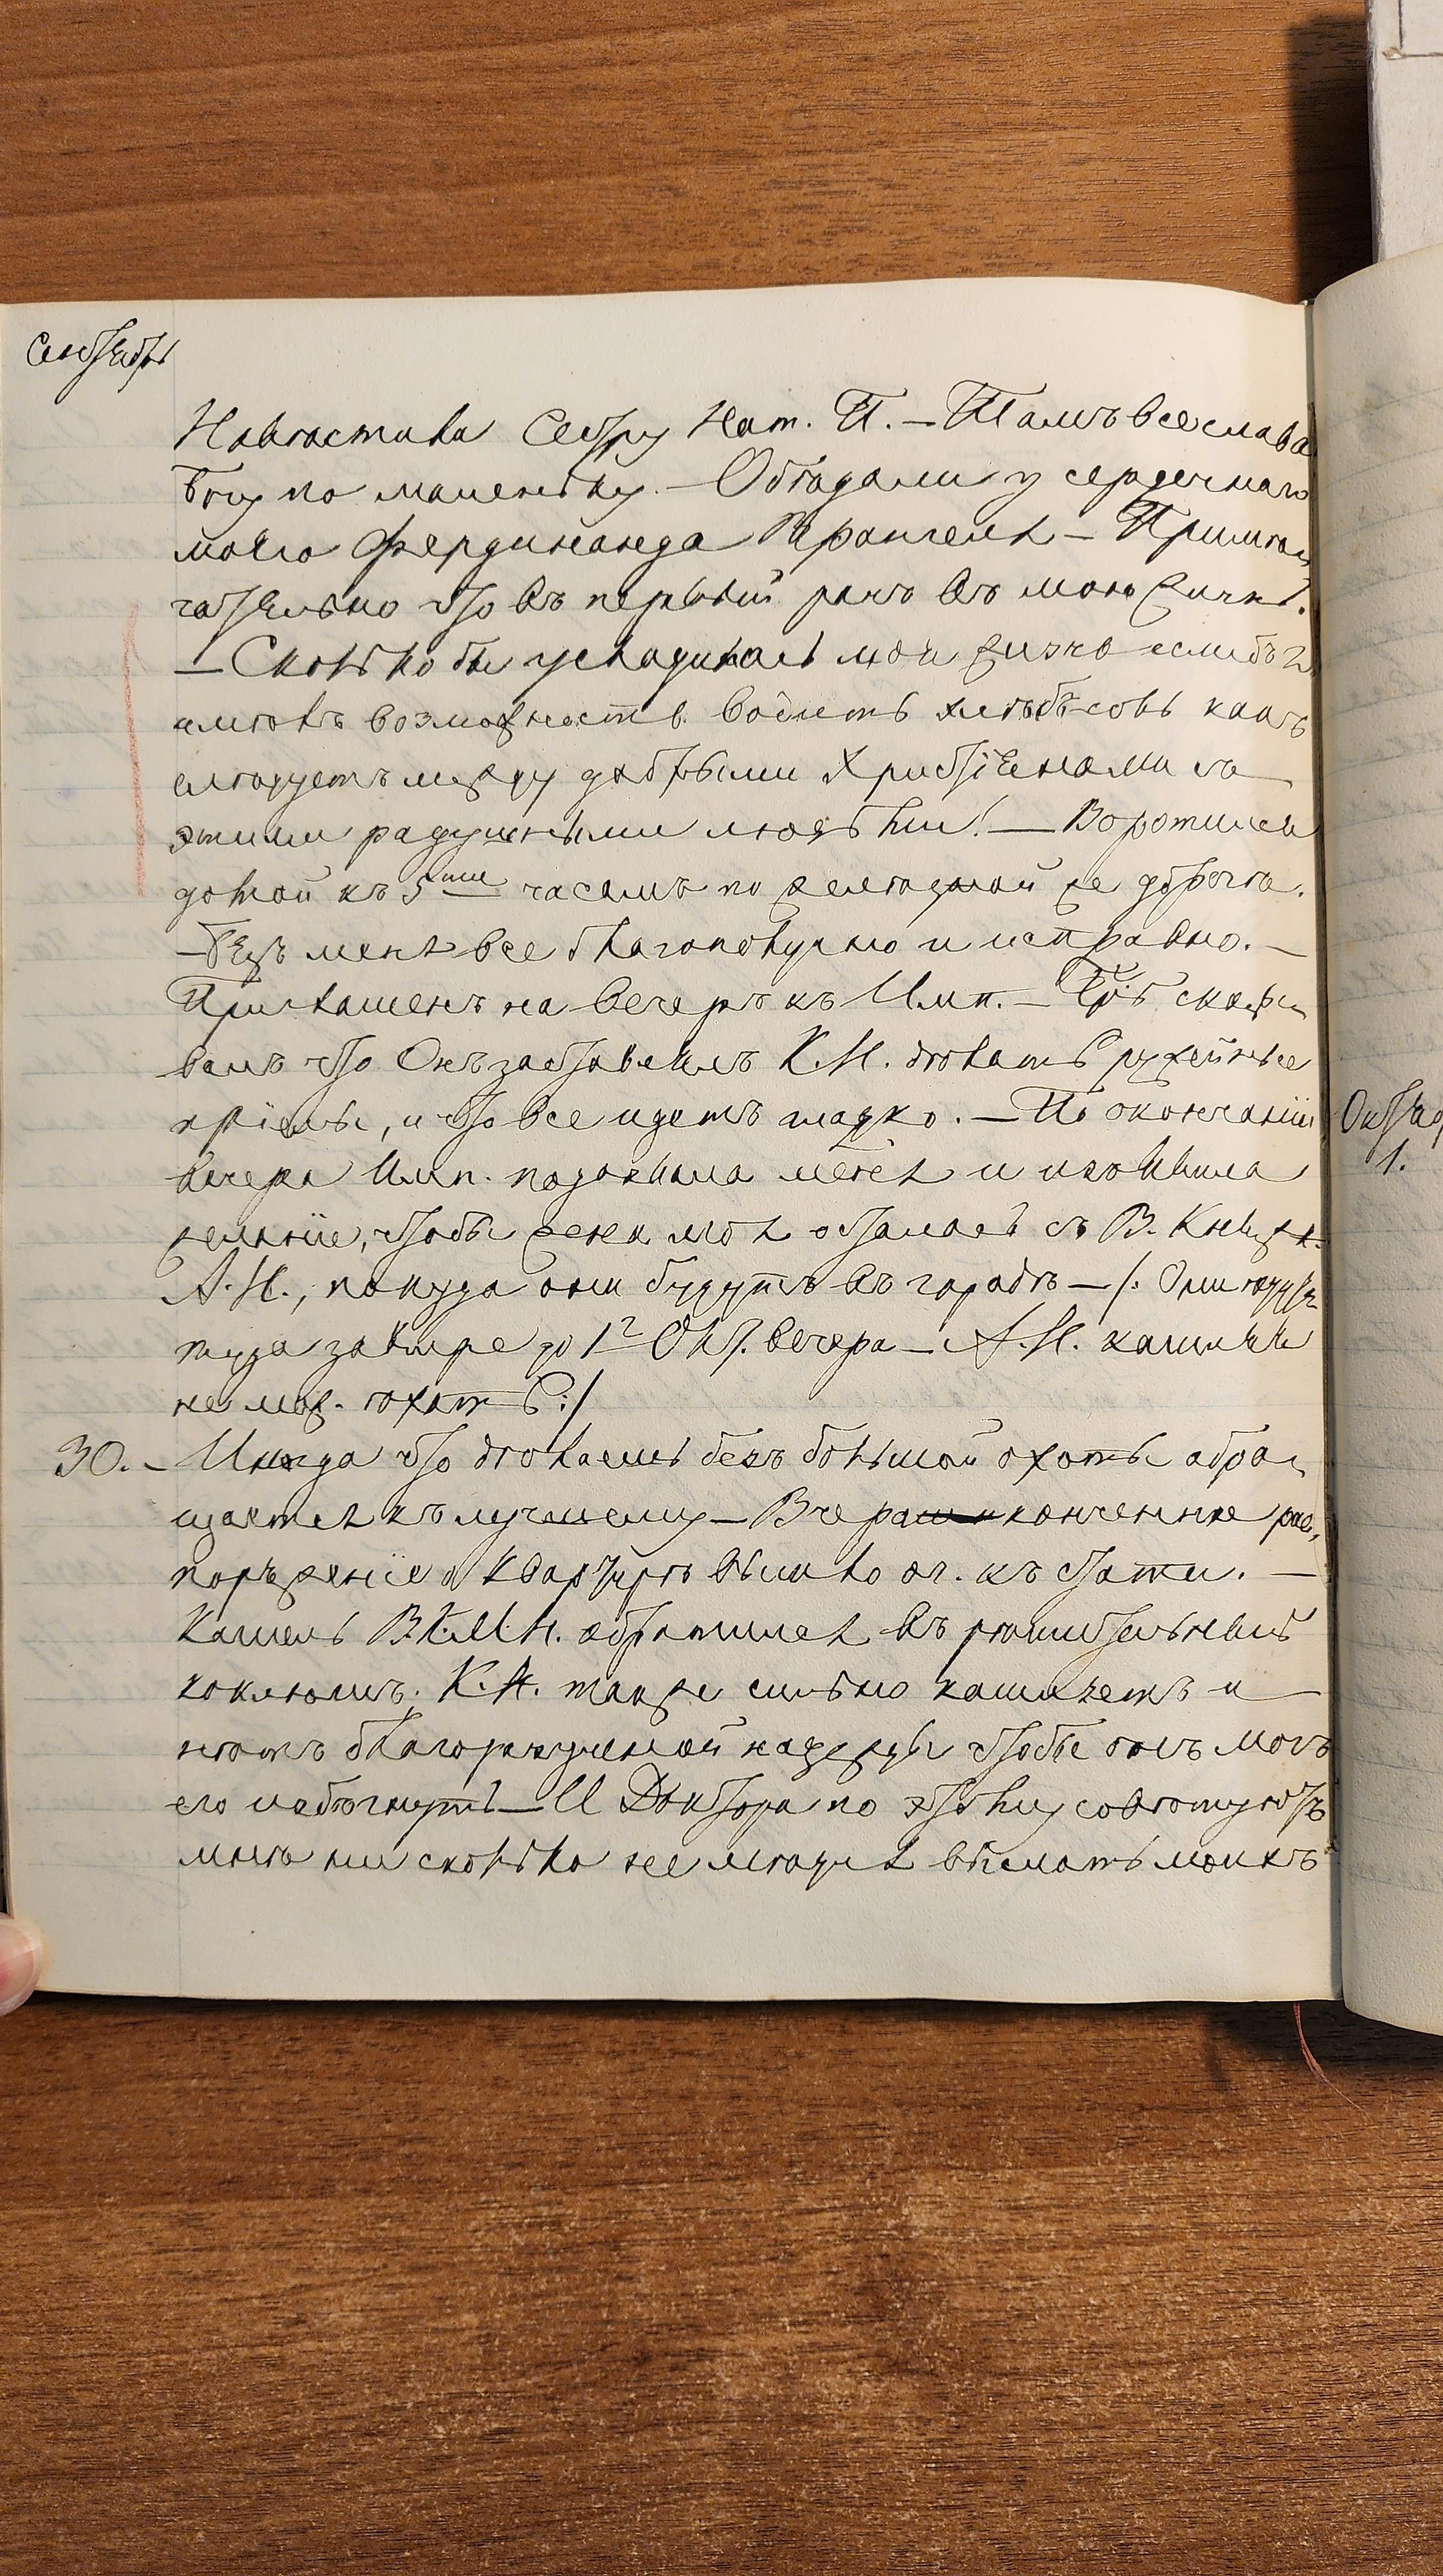 Сентябрь
Навѣстила Сестру Нат. П. — Тамъ все слава
Богу по маленьку. — Обѣдали у сердечнаго
моего Фердинанда Врангеля — Примѣ-
чательно что въ первый разъ въ мою жизнь.
— Сколько бы услаждалась моя жизнь если бъ я
имѣлъ возможность водить хлѣбъ-соль какъ
слѣдуетъ между добрыми Христіанами съ
этими радушными людьми! — Воротились
домой къ 5ти часамъ по желѣзной же дорогѣ.
— Безъ меня все благополучно и исправно. —
Приглашенъ на вечеръ къ Имп. — Гр:
валъ что Онъ заставлялъ К.Н. дѣлать ружейные
пріемы, и что все идетъ гладко. — По окончаніи
вечера Имп. подозвала меня и изъявила
желаніе, чтобы жена моя осталась съ В. Княж.
А.І., покуда они будутъ въ городѣ — /: Они ѣдутъ
туда завтре до 1го Окт. вечера — А.І. кашляя
не мож. ѣхать :/
30. — Иногда что дѣлаешь безъ большой охоты обра-
щается къ лучшему — Вчера конченное рас-
поряженіе о квартирѣ было оч. къ стати. —
Кашель В.К.М.Н. обратился въ рѣшительный
коклюшъ. К.Н. также сильно кашляетъ и
нѣтъ благоразумной надежды чтобы онъ могъ
его избѣгнуть — И Доктора по этому совѣтуютъ
мнѣ ни сколько не медля выслать моихъ
Октябрь
1.